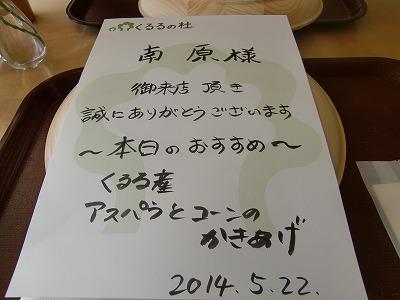 くるるの杜
南原様
御来店 頂き
誠にありがとうございます
～本日のおすすめ～
くるる産
アスパラとコーンの
かきあげ
2014.5.22.